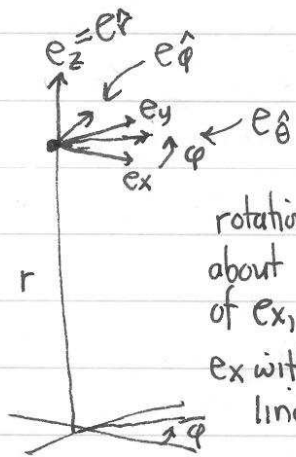 e_z = e_r̂
e_φ̂
e_y
e_θ̂
φ
e_x
rotation
about
r
of e_x,
e_x with
line
φ